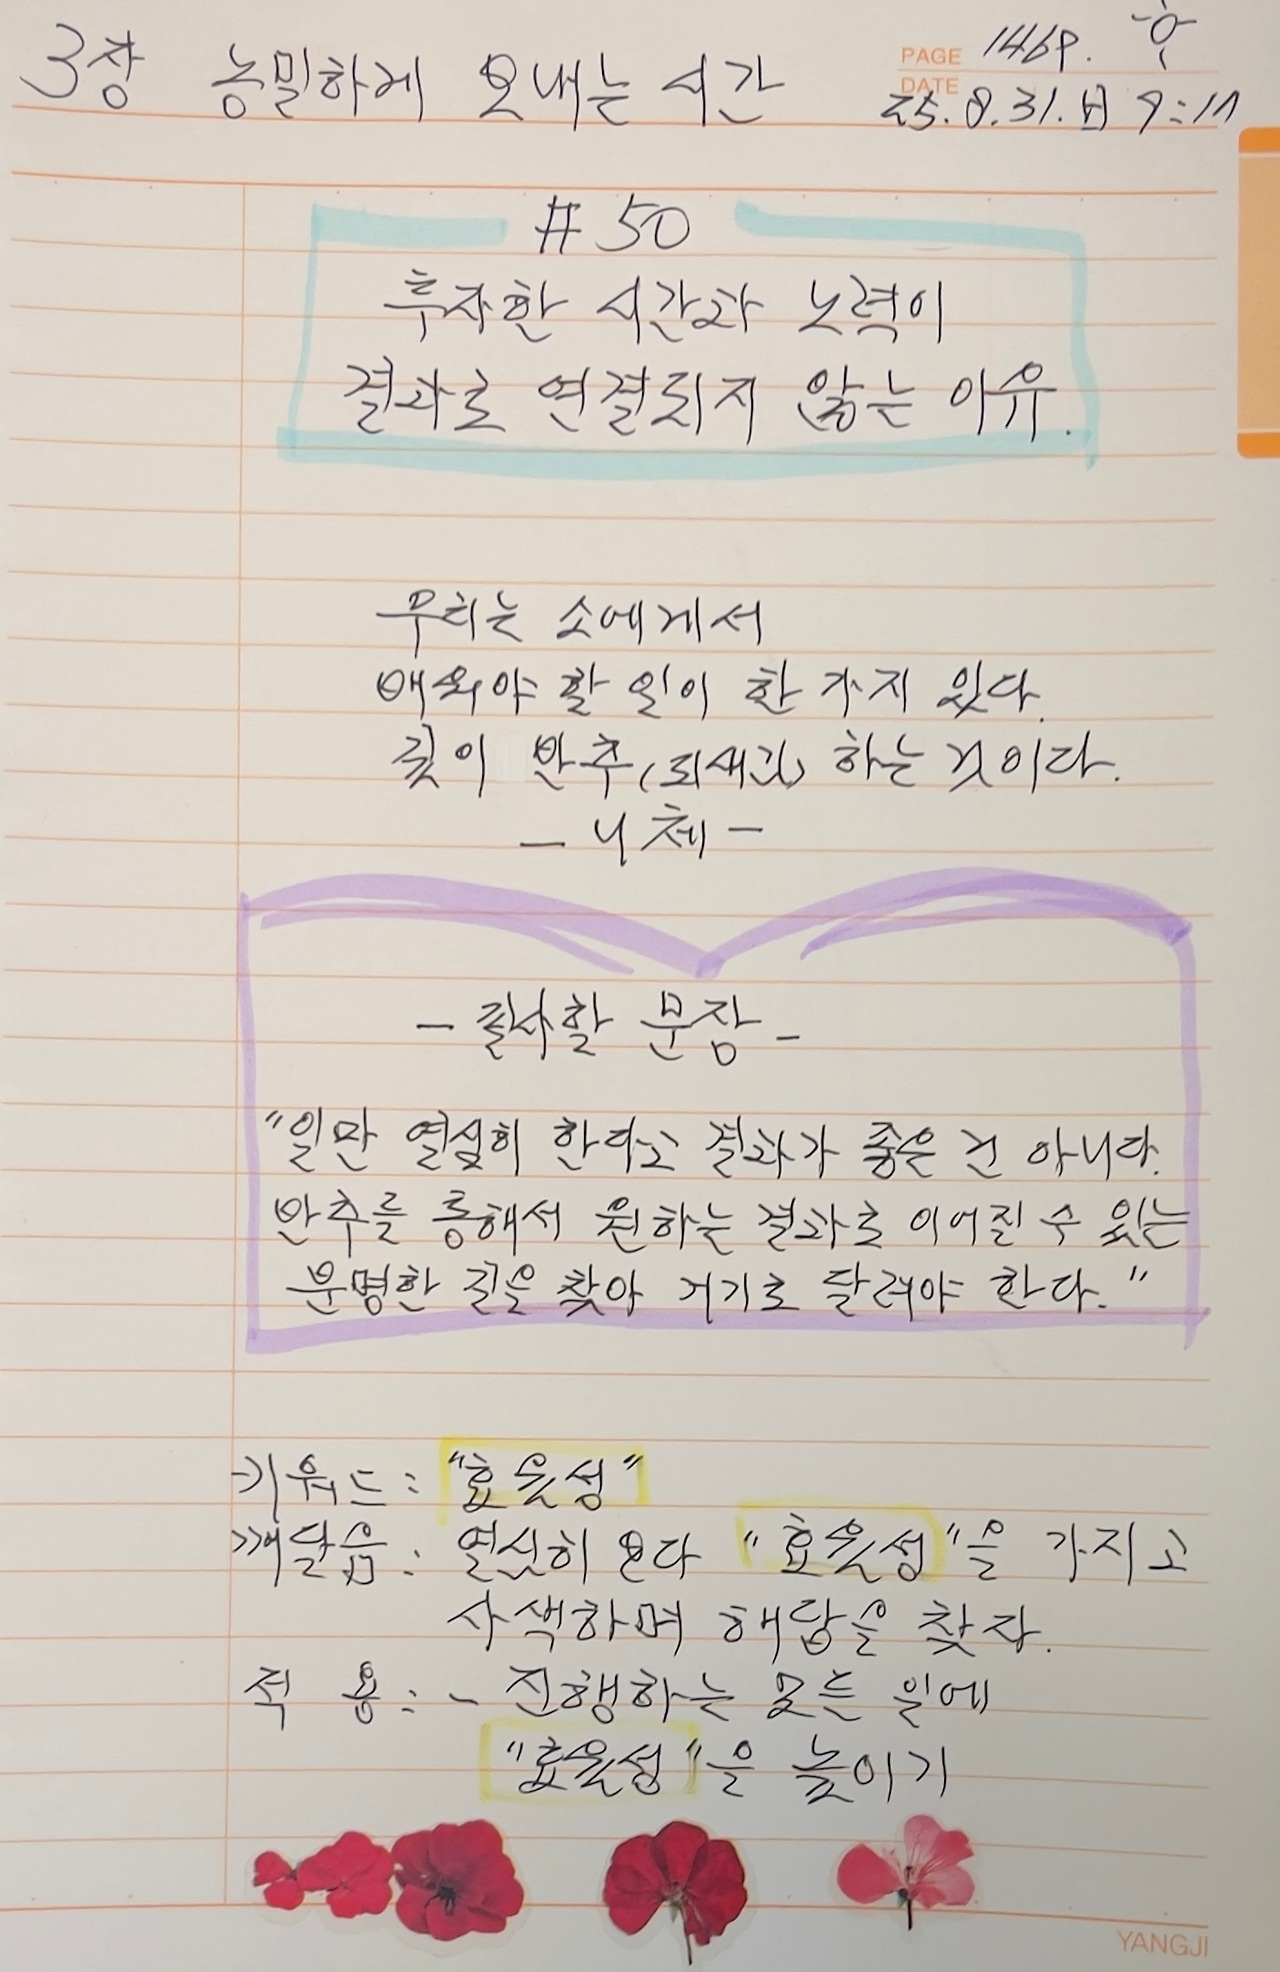 3장 농밀하게 보내는 시간
PAGE 146P.
DATE 25.8.31.日 9:17
#50
투자한 시간과 노력이
결과로 연결되지 않는 이유.
우리는 소에게서
배워야 할 일이 한 가지 있다.
그것이 반추(되새김) 하는 것이다.
- 니체 -
- 필사할 문장 -
"일만 열심히 한다고 결과가 좋은 건 아니다.
반추를 통해서 원하는 결과로 이어질 수 있는
분명한 길을 찾아 거기로 달려야 한다."
키워드 : "효율성"
깨달음 : 열심히 보다 "효율성"을 가지고
사색하며 해답을 찾자.
적 용 : - 진행하는 모든 일에
"효율성"을 높이기
YANGJI